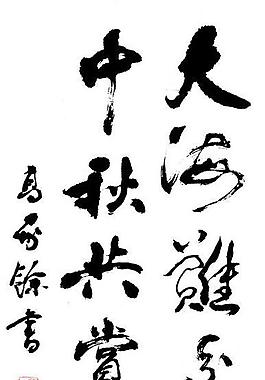 大海難
中秋共賞
書